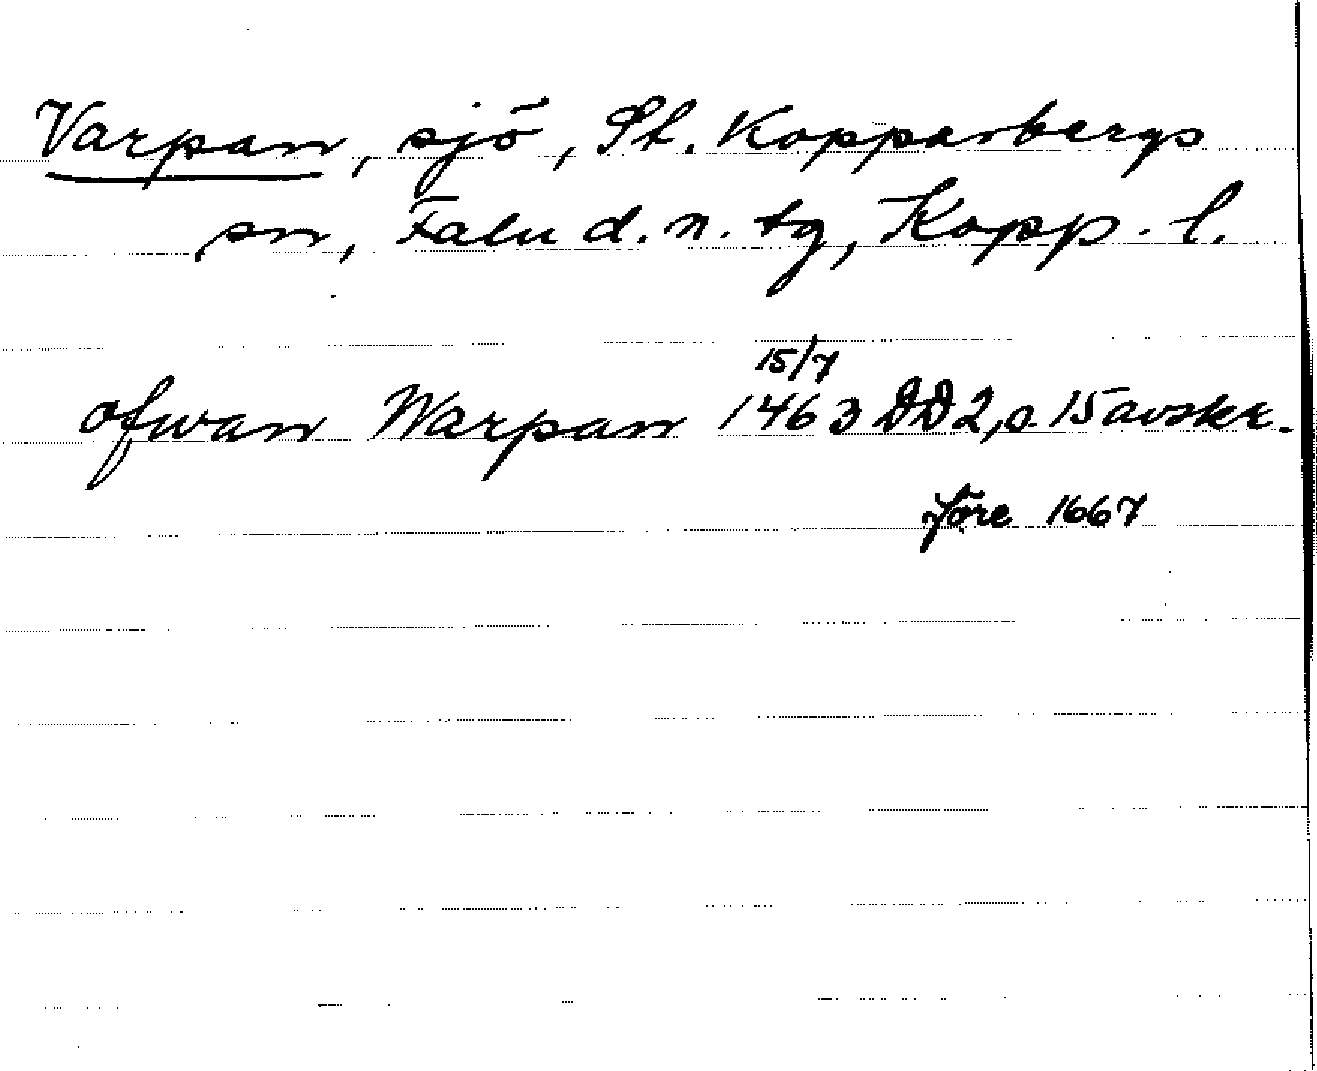 Varpan, sjö, St. Kopparbergs
sn, Falu d. n. tg, Kopp. l.
15/7
ofwan Warpan 1463 DD2, s. 15 avskr.
före 1667